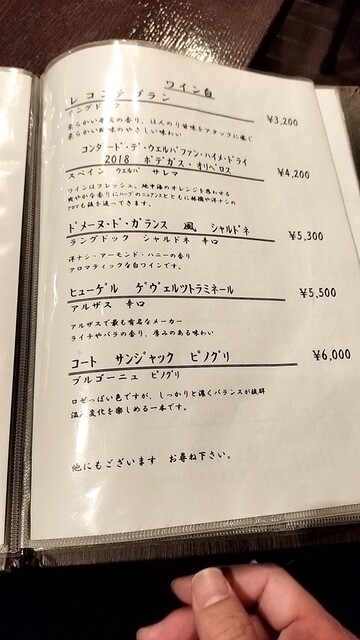 ワイン白
レ コンテ ブラン
ラングドック
¥3,200
柔らかい果実の香り、ほんのり甘味をアタックに感じ
柔らかい酸味のやさしい味わい
コンタード・デ・ウェルバ ファン・ハイメ・ドライ
2018 ボデガス・オリベロス
¥4,200
スペイン ウェルバ サレマ
ワインはフレッシュ、地中海のオレンジを思わせる
爽やかな香りにハーブのニュアンスとともに林檎や洋ナシの
アロマも後を追ってきます。
ドメーヌ・ド・ガランス 風 シャルドネ
¥5,300
ラングドック シャルドネ 辛口
洋ナシ・アーモンド・ハニーの香り
アロマティックな白ワインです。
ヒューゲル ゲヴェルツトラミネール
¥5,500
アルザス 辛口
アルザスで最も有名なメーカー
ライチやバラの香り、厚みのある味わい
コート サンジャック ピノグリ
¥6,000
ブルゴーニュ ピノグリ
ロゼっぽい色ですが、しっかりと濃くバランスが抜群
温度変化を楽しめる一本です。
他にもございます お尋ね下さい。